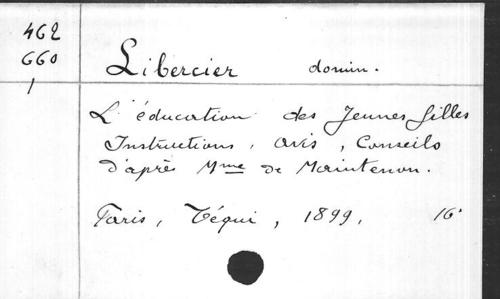 462
660
1
Libercier domin.
L'éducation des Jeunes filles
Instructions, avis, Conseils
d'après Mme de Maintenon.
Paris, Téqui, 1899, 16°